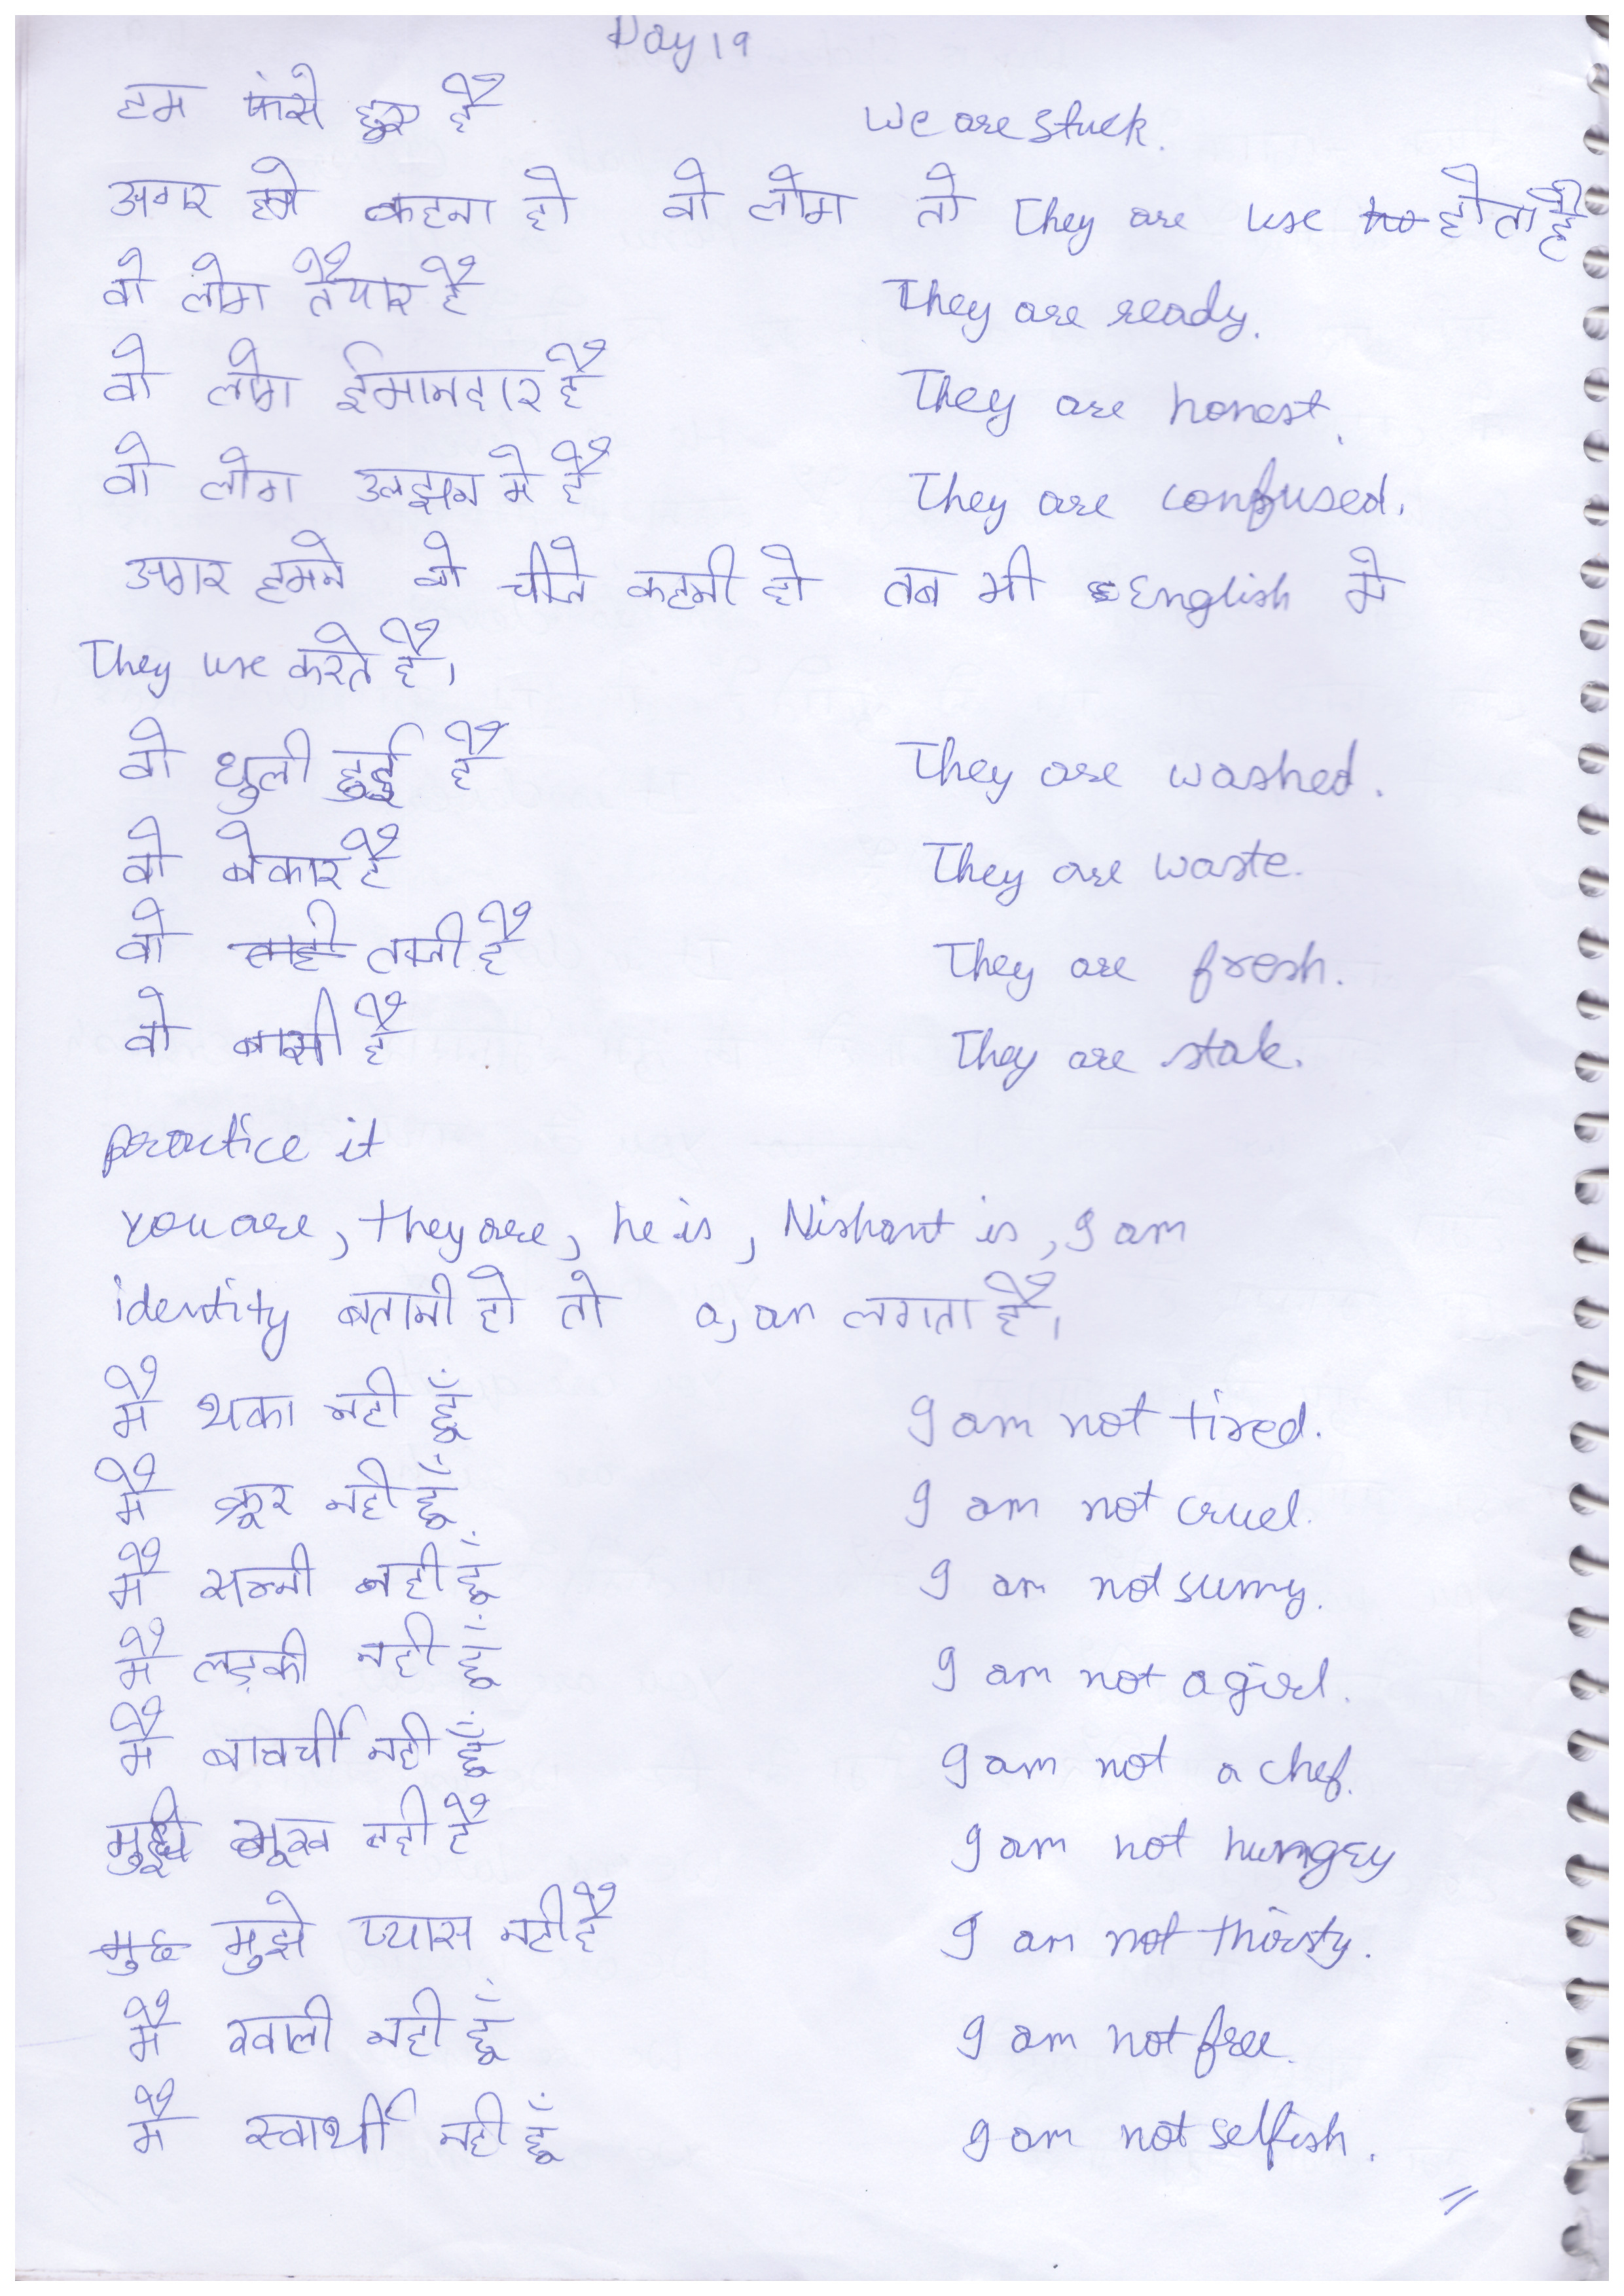 Day 19
हम फंसे हुए है We are stuck.
अगर हमे कहना हो वो लोग तो They are use होता है
वो लोग तैयार है They are ready.
वो लोग ईमानदार है They are honest.
वो लोग उलझन मे है They are confused.
अगर हमने वो चीजे कहनी हो तब भी English मे
They use करते है।
वो धुली हुई है They are washed.
वो बेकार है They are waste.
वो ताजी है They are fresh.
वो बासी है They are stale.
practice it
You are, they are, he is, Nishant is, I am
identity बतानी हो तो a, an लगता है।
मै थका नही हूँ I am not tired.
मै क्रूर नही हूँ I am not cruel.
मै सन्नी नही हूँ I am not sunny.
मै लड़की नही हूँ I am not a girl.
मै बावर्ची नही हूँ I am not a chef.
मुझे भूख नही है I am not hungry
मुझे प्यास नही है I am not thirsty.
मै खाली नही हूँ I am not free.
मै स्वार्थी नही हूँ I am not selfish.